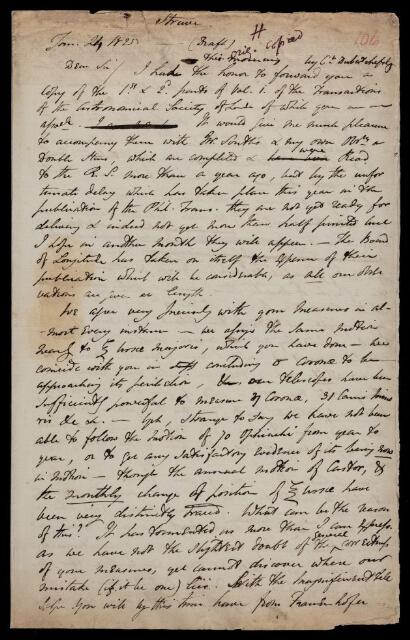 Struve
Jan. 24 1825 (Draft) copied 106
this morning by Ct
Dear Sir I had the honor to forward you a
copy of the 1st & 2d parts of Vol. i. of the Transactions
of the Astronomical Society of London of which you are an
It would give me much pleasure
to accompany them with Mr South's & my own Obs. on
double stars which are completed & were Read
to the R.S. more than a year ago, but by the unfor
tunate delay which has taken place this year in the
publication of the Phil. Trans. they are not yet ready for
delivery & indeed not yet more than half printed but
I hope in another month they will appear. — The Board
of Longitude has taken on itself the expense of their
publication which will be considerable, as all our Obser
vations are given at length.
We agree very precisely with your measures in al-
most every instance — we assign the same motion
nearly to ξ Ursæ majoris, which you have done — we
coincide with you in concluding σ Coronæ to be
approaching its perihelion, our telescopes have been
sufficiently powerful to measure η Coronæ, 31
&c &c. — Yet, strange to say we have not been
able to follow the motion of 70 Ophiuchi from year to
year, or to get any satisfactory evidence of its being now
in motion — though the annual motion of Castor, &
the monthly change of position of ξ Ursæ have
been very distinctly traced. What can be the reason
of this? It has tormented us more than I can express
as we have not the slightest doubt of the general correctness
of your measures, yet cannot discover where our
mistake (if it be one) lies. With the magnificent tele
scope you will by this time have from Fraunhofer